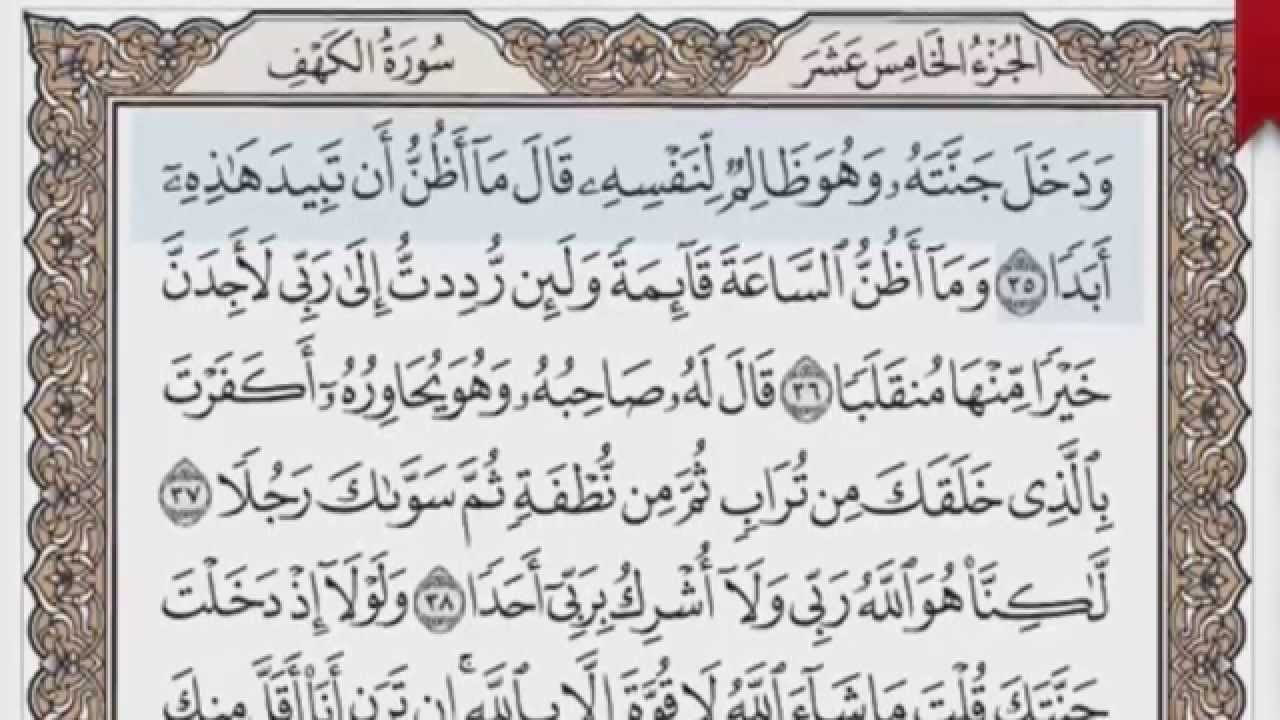 الجُزْءُ الخَامِسَ عَشَرَ
سُورَةُ الكَهْفِ
وَدَخَلَ جَنَّتَهُۥ وَهُوَ ظَالِمٌ لِّنَفْسِهِۦ قَالَ مَآ أَظُنُّ أَن تَبِيدَ هَٰذِهِۦٓ
أَبَدًا ٣٥ وَمَآ أَظُنُّ ٱلسَّاعَةَ قَآئِمَةً وَلَئِن رُّدِدتُّ إِلَىٰ رَبِّي لَأَجِدَنَّ
خَيْرًا مِّنْهَا مُنقَلَبًا ٣٦ قَالَ لَهُۥ صَاحِبُهُۥ وَهُوَ يُحَاوِرُهُۥٓ أَكَفَرْتَ
بِٱلَّذِي خَلَقَكَ مِن تُرَابٍ ثُمَّ مِن نُّطْفَةٍ ثُمَّ سَوَّىٰكَ رَجُلًا ٣٧
لَّٰكِنَّا۠ هُوَ ٱللَّهُ رَبِّي وَلَآ أُشْرِكُ بِرَبِّيٓ أَحَدًا ٣٨ وَلَوْلَآ إِذْ دَخَلْتَ
جَنَّتَكَ قُلْتَ مَا شَآءَ ٱللَّهُ لَا قُوَّةَ إِلَّا بِٱللَّهِۚ إِن تَرَنِ أَنَا۠ أَقَلَّ مِنكَ